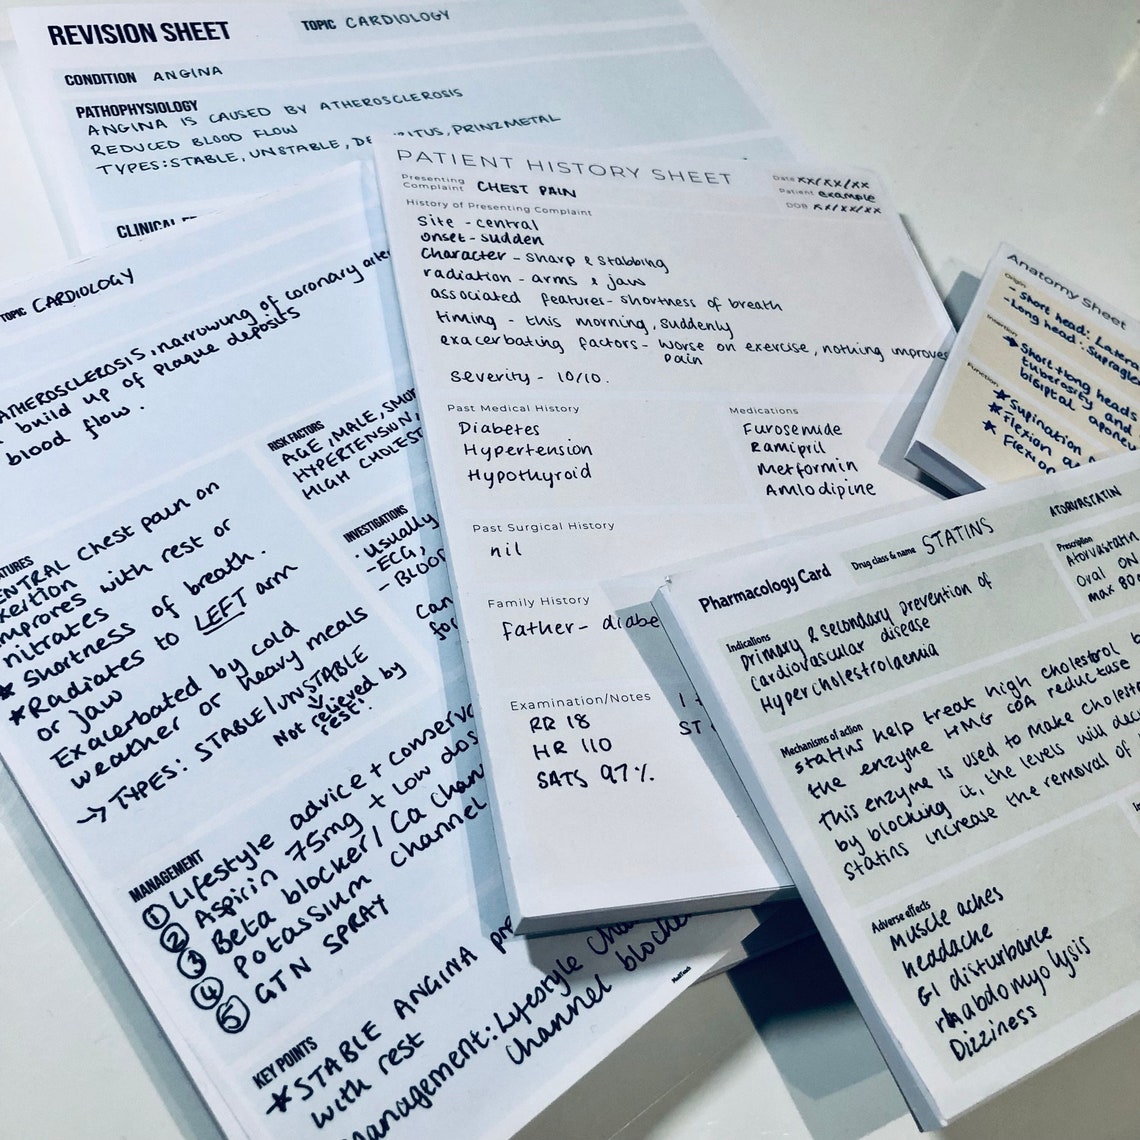 REVISION SHEET
TOPIC CARDIOLOGY
CONDITION ANGINA
PATHOPHYSIOLOGY
ANGINA IS CAUSED BY ATHEROSCLEROSIS
REDUCED BLOOD FLOW
TYPES: STABLE, UNSTABLE, PRINZMETAL
CLINICAL
TOPIC CARDIOLOGY
ATHEROSCLEROSIS, narrowing of coronary
build up of plaque deposits
blood flow.
CHEST pain on
improves with rest or
nitrates
* shortness of breath.
* Radiates to LEFT arm
or jaw
Exacerbated by cold
weather or heavy meals
→ TYPES: STABLE/UNSTABLE
Not relieved by
rest".
RISK FACTORS
AGE, MALE,
HYPERTENSION,
HIGH
INVESTIGATIONS
usually
- ECG,
MANAGEMENT
① Lifestyle advice +
② Aspirin 75mg + low
③ Beta blocker / Ca
④ Potassium channel
⑤ GTN SPRAY
KEY POINTS
* STABLE ANGINA
with rest
Management: Lifestyle
channel
PATIENT HISTORY SHEET
Presenting
Complaint CHEST PAIN
Date xx/xx/xx
Patient example
DOB xx/xx/xx
History of Presenting Complaint
Site - central
onset - sudden
character - sharp & stabbing
radiation - arms & jaw
associated features - shortness of breath
timing - this morning, suddenly
exacerbating factors - worse on exercise, nothing improves
pain
severity - 10/10.
Past Medical History
Diabetes
Hypertension
Hypothyroid
Medications
Furosemide
Ramipril
Metformin
Amlodipine
Past Surgical History
nil
Family History
Father -
Examination/Notes
RR 18
HR 110
SATS 97%
ST
Anatomy Sheet
Origin
- Short head:
- Long head:
Insertion
→ Short + long heads
tuberosity and
bisipital
Function
* Supination
* Flexion
* Flexion
Pharmacology Card
Drug class & name STATINS
ATORVASTATIN
Indications
primary & secondary prevention of
cardiovascular disease
Hypercholestrolaemia
Prescription
Atorvastatin
Oral
max
Mechanisms of action
statins help treat high cholestrol
the enzyme HMG COA reductase
This enzyme is used to make
by blocking it, the levels will
statins increase the removal of
Adverse effects
muscle aches
headache
GI disturbance
rhabdomyolysis
Dizziness